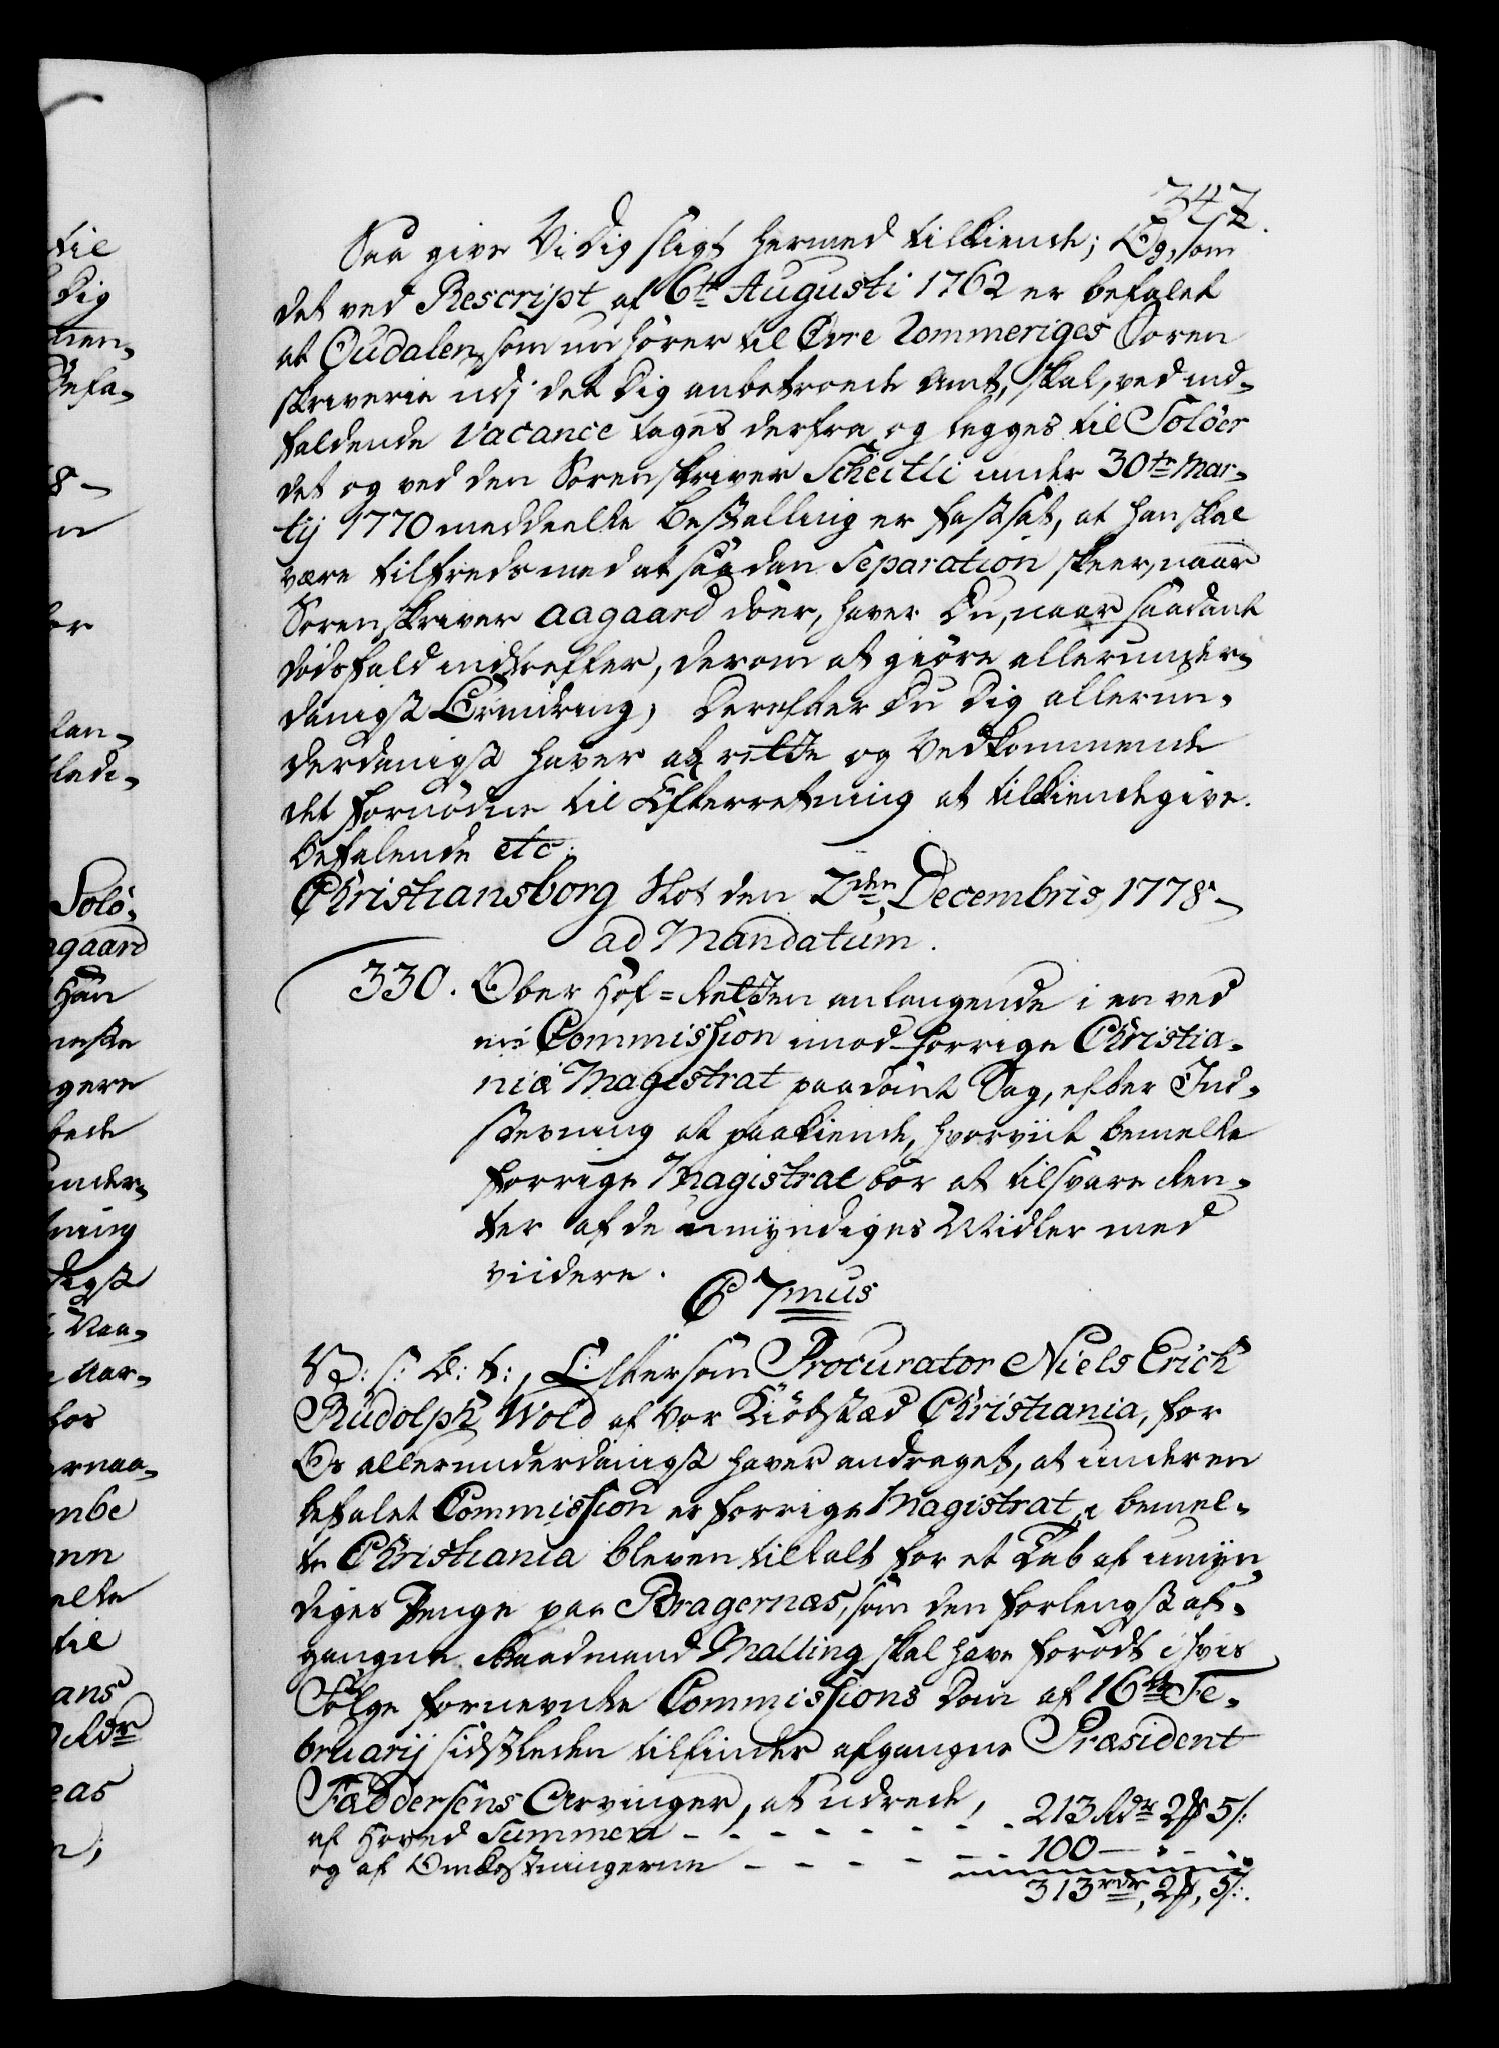 347.
Saa give Vi Dig sligt hermed tilkiende; Og, som
det ved Rescript af 6te Augusti 1762 er befalet
at Oudalen, som nu hører til Øvre Rommeriges Soren
skriverie udj det Dig anbetroede Amt, skal, ved ind-
faldende Vacance tages derfra og legges til Soløer
det og ved den Sorenskriver Scheitli under 30te Mar-
tij 1770 meddeelte Bestalling er fastsat, at han skal
være tilfreds med at saadan Separation skeer, naar
Sorenskriver Aagaard døer, haver Du, naar saadant
dødsfald indtreffer, derom at giøre allerunder-
danigst Erindring; Derefter Du Dig allerun-
derdanigst haver at rette og Vedkommende
det fornødne til Efterretning at tilkiendegive.
Befalende etc.
Christiansborg Slot den 2den Decembris, 1778-
ad Mandatum.
330. Ober Hof-Retten anlangende i en ved
en Commission imod forrige Christia-
niæ Magistrat paadømt Sag, efter Ind-
stevning at paakiende, hvorviit bemelte
forrige Magistrat bør at tilsvare Ren-
ter af de umyndiges Midler med
viidere.
C 7mus
V: s: G: t:, Eftersom Procurator Niels Erich
Rudolph Wold af Vor Kiøbstæd Christiania, for
Os allerunderdanigst haver andraget, at under en
befalet Commission er forrige Magistrat i bemel-
te Christiania bleven tiltalt for et Tab af umyn
diges Penge paa Bragernæs, som den forlengst af-
gangne Raadmand Malling skal have forødt i hvis
Følge fornevnte Commissions Dom af 16de Fe-
bruarij sidstleden tilfinder afgangne Præsident
Fæddersens Arvinger, at udrede,
af Hoved Summen - - - - - - - - 213 Rdr 2 ß 5/:
og af Omkostningerne - - - - - - 100 - " - "
313 rdr, 2 ß, 5/:.